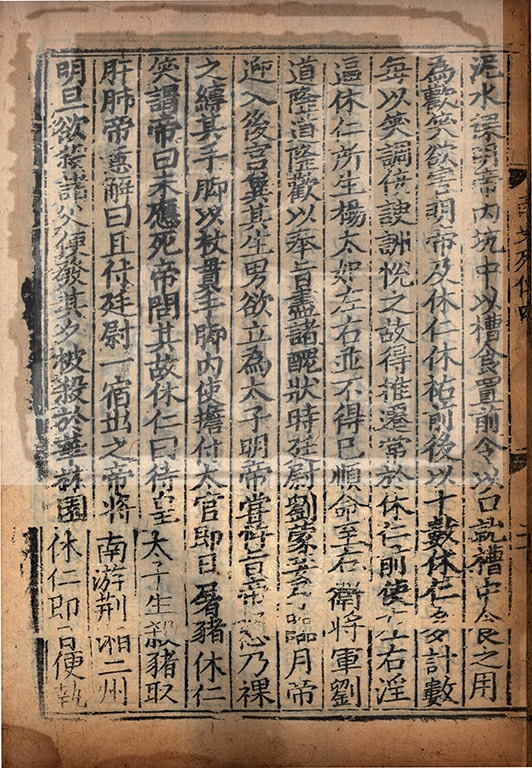 泥水裸明帝内坑中以槽食置前令以口就槽中食之用
為歡笑欲害明帝及休仁休祐前後以十數休仁多計數
每以笑調佞諛悅之故得推遷常於休仁前使左右淫
逼休仁所生楊太妃左右並不得已順命至右衞將軍劉
道隆道隆歡以奉旨盡諸醜狀時廷尉劉蒙妾臨月帝
迎入後宮兾其生男欲立為太子明帝嘗忤旨帝怒乃裸
之縛其手脚以杖貫手脚内使擔付太官即日屠豬休仁
笑謂帝曰未應死帝問其故休仁曰待皇太子生殺豬取
肝肺帝意解曰且付廷尉一宿出之帝將南游荊湘二州
明旦欲殺諸父便發其夕被殺於華林園休仁即日便執